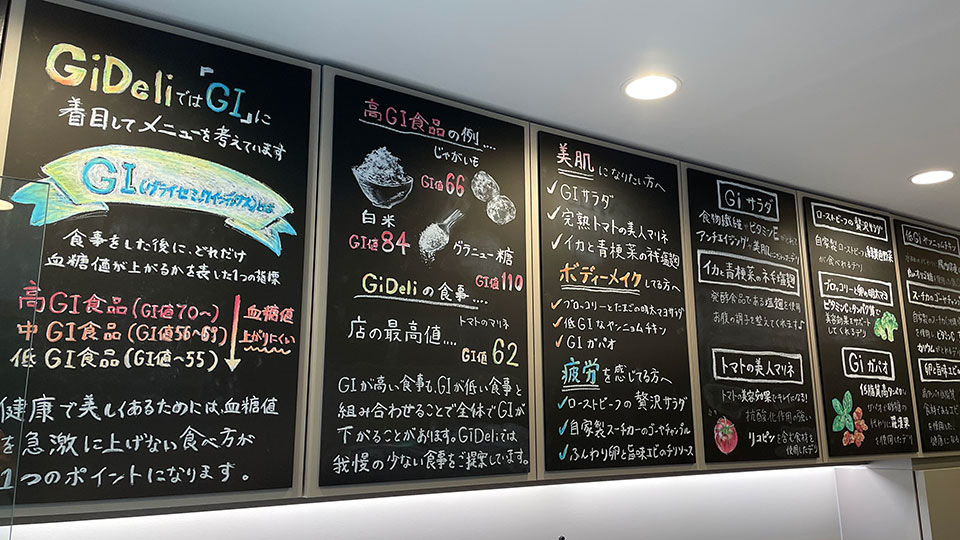 GiDeliでは「GI」に
着目してメニューを考えています
GI(グライセミックインデックス)とは
食事をした後に、どれだけ
血糖値が上がるかを表した1つの指標
高GI食品(GI値70〜)
中GI食品(GI値56〜69)
低GI食品(GI値〜55)
血糖値
上がりにくい
健康で美しくあるためには、血糖値
を急激に上げない食べ方が
1つのポイントになります。
高GI食品の例....
じゃがいも
GI値66
白米
GI値84
グラニュー糖
GI値110
GiDeliの食事....
トマトのマリネ
店の最高値....
GI値62
GIが高い食事も、GIが低い食事と
組み合わせることで全体でGIが
下がることがあります。GiDeliでは
我慢の少ない食事をご提案しています。
美肌になりたい方へ
✓GIサラダ
✓完熟トマトの美人マリネ
✓イカと青梗菜のネギ塩麹
ボディーメイクしてる方へ
✓ブロッコリーとたまごの明太マヨサラダ
✓低GIなヤンニョムチキン
✓GIガパオ
疲労を感じてる方へ
✓ローストビーフの贅沢サラダ
✓自家製スーチカーのゴーヤチャンプル
✓ふんわり卵と旨味エビのチリソース
Giサラダ
食物繊維やビタミンEがとれて
アンチエイジングや美肌
イカと青梗菜のネギ塩麹
発酵食品である塩麹を使用
お腹の調子を整えてくれます♪
トマトの美人マリネ
トマトの美容効果でキレイになる!
抗酸化作用の強い
リコピンを含む食材を
使用したデリ
ローストビーフの贅沢サラダ
自家製ローストビーフと
が食べれるデリ
ブロッコリーと卵の明太マヨ
ビタミンCとタンパク質で
美容効果をサポート
してくれるデリ
Giガパオ
低糖質高タンパク
を使用したデリ
低GIヤンニョムチキン
スーチカのゴーヤチャンプル
卵と旨味エビの